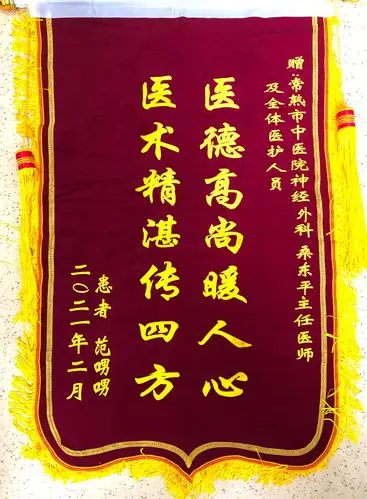 赠:常熟市中医院神经外科 桑东平主任医师
及全体医护人员
医德高尚暖人心
医术精湛传四方
患者 范唠唠
二〇二一年二月